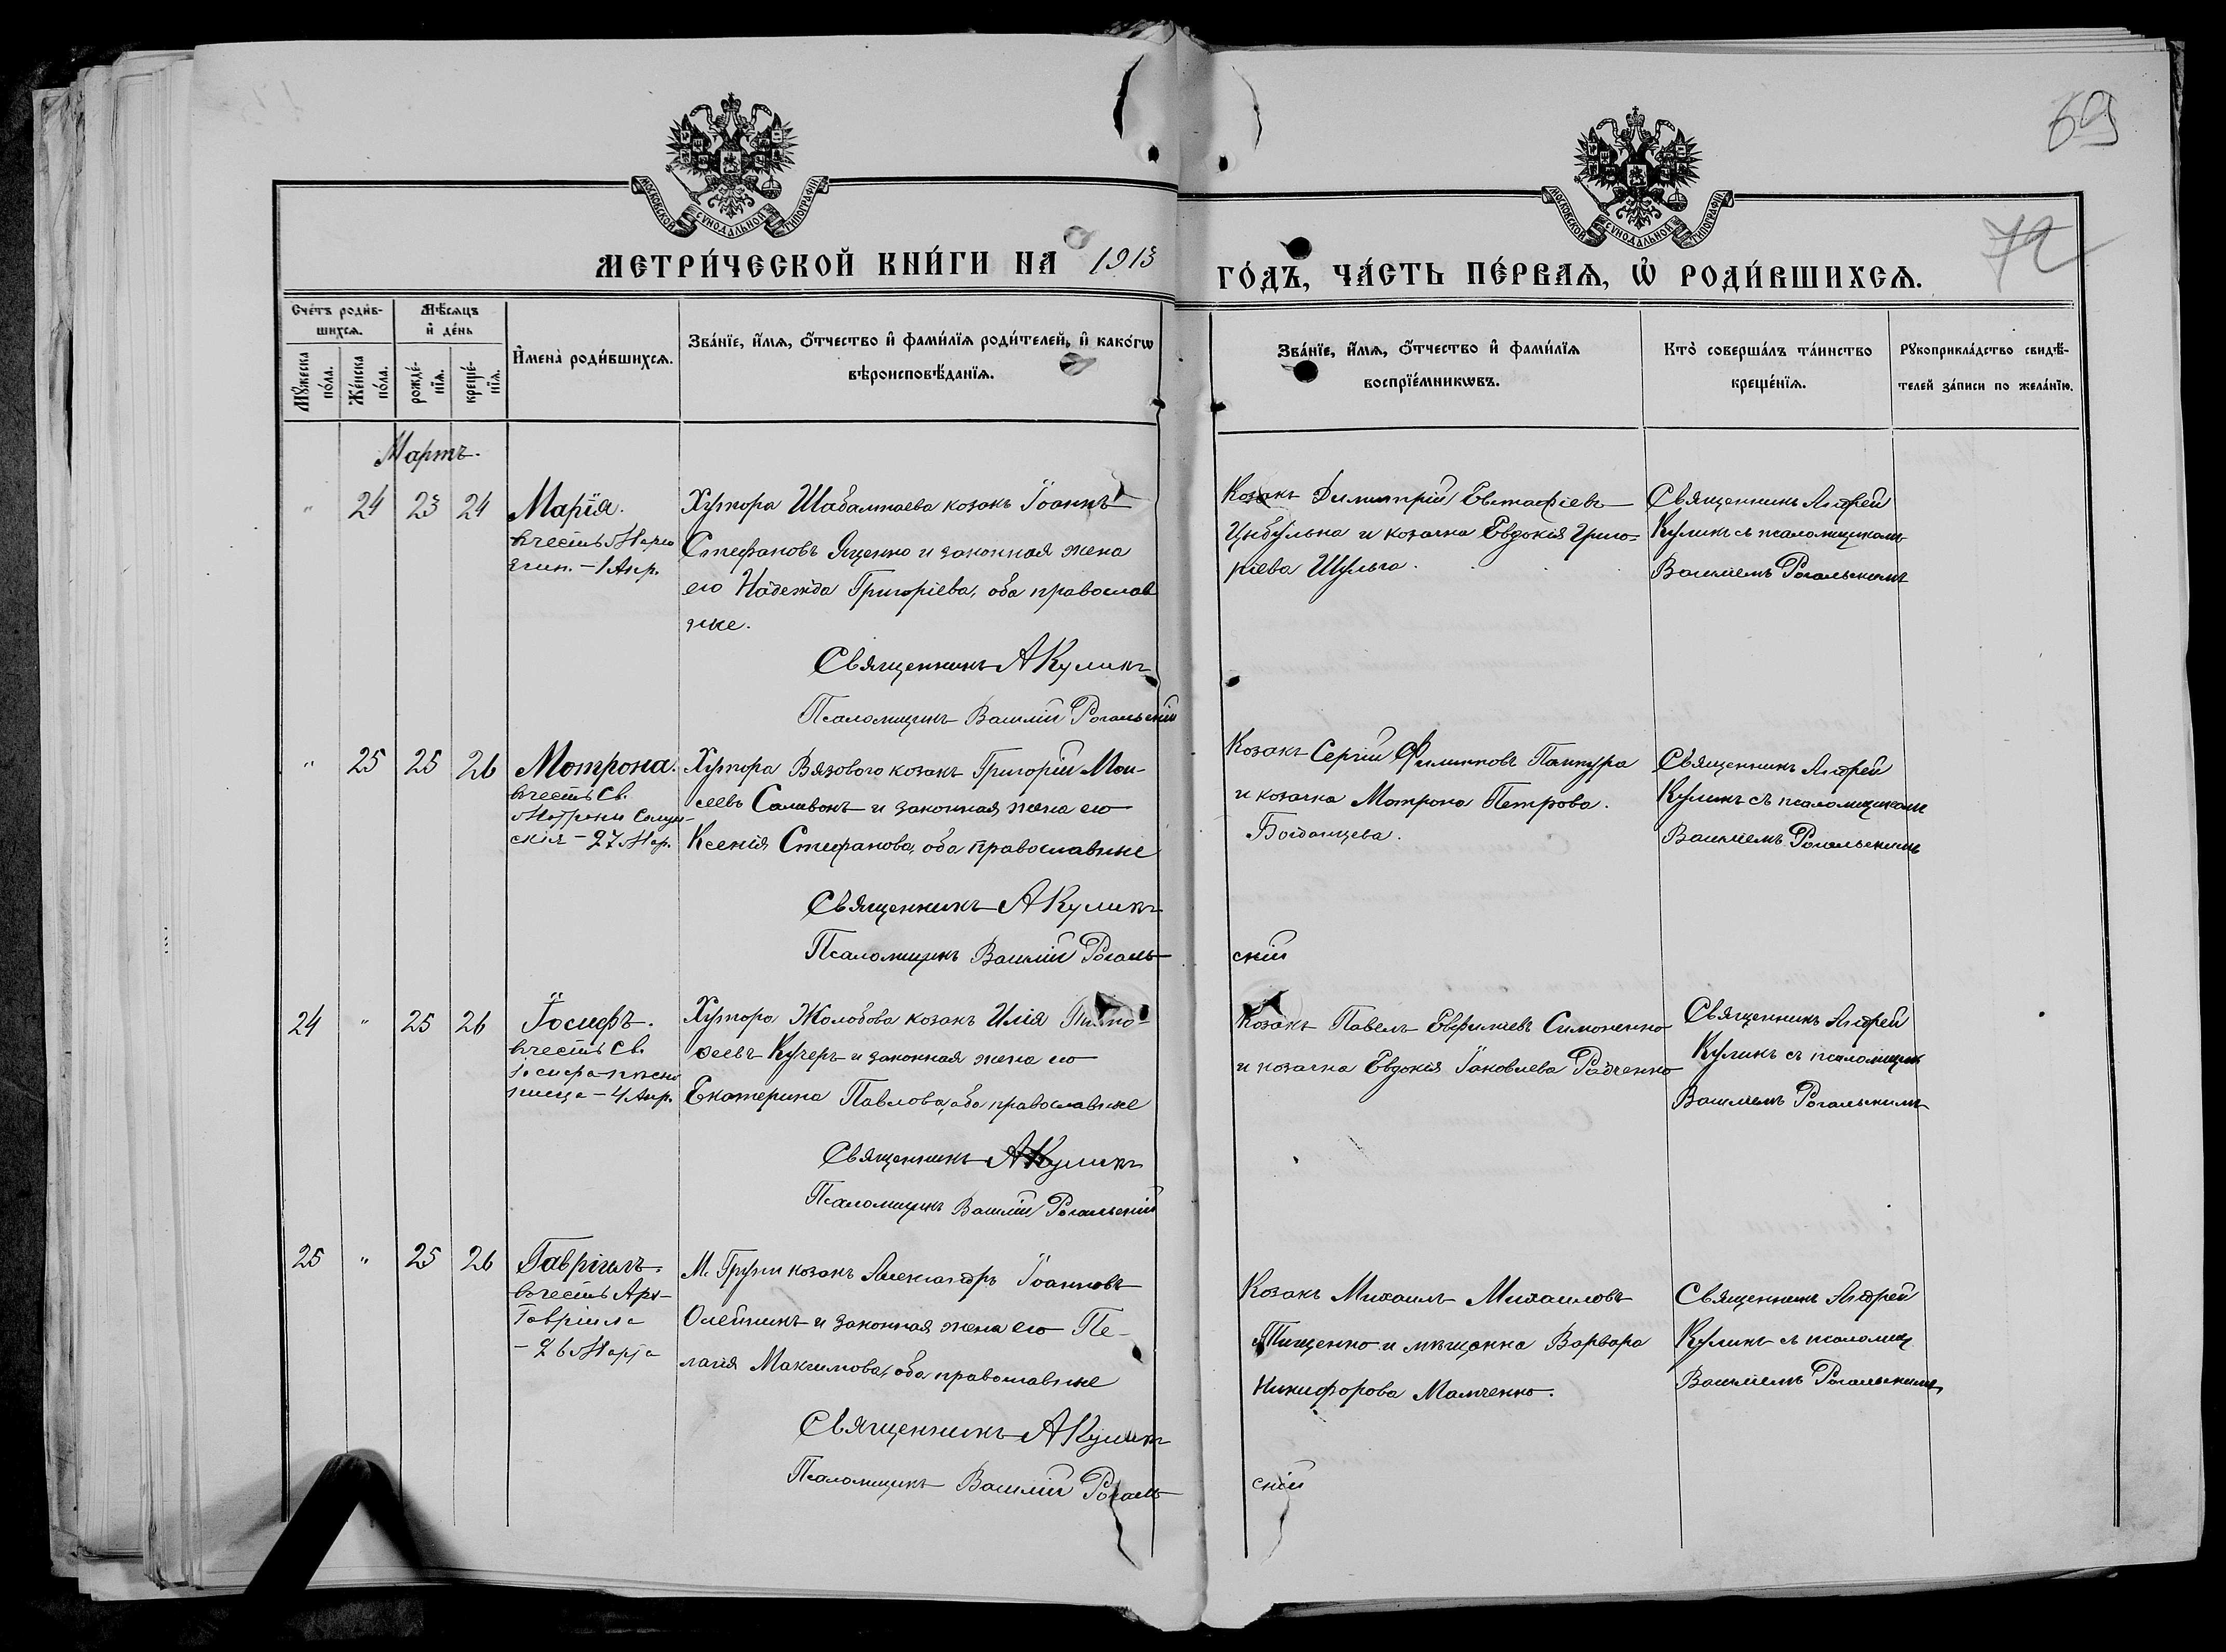 69
72
МОСКОВСКОЙ СѴНОДАЛЬНОЙ ТИПОГРАФІИ
МОСКОВСКОЙ СѴНОДАЛЬНОЙ ТИПОГРАФІИ
МЕТРИ́ЧЕСКОЙ КНИ́ГИ НА 1913
ГО́ДЪ, ЧА́СТЬ ПЕ́РВАѦ, Ѡ҆ РОДИ́ВШИХСѦ.
Сче́тъ роди́в-
шихсѧ.
Мѣ́сѧцъ
и҆ де́нь
Мꙋ́жеска
по́ла.
Же́нска
по́ла.
рожде́-
нїѧ.
креще́-
нїѧ.
И҆мена̀ роди́вшихсѧ.
Зва́нїе, и҆́мѧ, ѻ҆́тчество и҆ фами́лїѧ роди́телей, и҆ како́гѡ
вѣроисповѣ́данїѧ.
Зва́нїе, и҆́мѧ, ѻ҆́тчество и҆ фами́лїѧ
воспрїе́мникѡвъ.
Кто̀ соверша́лъ та́инство
креще́нїѧ.
Рꙋкоприкла́дство свидѣ́-
телей за́писи по жела́нїю.
Мартъ.
" 24 23 24
Марія.
въ честь Маріи
Егип. - 1 Апр.
Хутора Шабалтаева козакъ Іоаннъ
Стефановъ Яценко и законная жена
его Надежда Григоріева, оба православ
ные.
Священникъ А Куликъ
Псаломщикъ Василій Рогальскій
Козакъ Димитрій Евстафіевъ
Цибулька и козачка Евдокія Григо=
ріева Шульга.
Священникъ Андрей
Куликъ съ псаломщикомъ
Василіемъ Рогальскимъ
" 25 25 26
Мотрона.
въ честь Св.
Матроны Солун-
скія - 27 Мар.
Хутора Вязового козакъ Григорій Мои-
сеевъ Саливонъ и законная жена его
Ксенія Стефанова, оба православные
Священникъ А Куликъ
Псаломщикъ Василій Рогаль-
скій
Козакъ Сергій Филиповъ Панкура
и козачка Мотрона Петрова
Богданцева.
Священникъ Андрей
Куликъ съ псаломщикомъ
Василіемъ Рогальскимъ
24 " 25 26
Іосифъ.
въ честь Св.
Іосифа пѣсно
писца - 4 Апр.
Хутора Жолобова козакъ Илія Тимо-
феевъ Кучеръ и законная жена его
Екатерина Павлова, оба православные
Священникъ А Куликъ
Псаломщикъ Василій Рогальскій
Козакъ Павелъ Евфиміевъ Симоненко
и козачка Евдокія Іаковлева Радченко
Священникъ Андрей
Куликъ съ псаломщик
Василіемъ Рогальскимъ
25 " 25 26
Гавріилъ.
въ честь Арх-
Гавріила
- 26 Марта
М. Груни козакъ Александръ Іоанновъ
Олейникъ и законная жена его Пе-
лагія Максимова, оба православные
Священникъ А Куликъ
Псаломщикъ Василій Рогаль
скій
Козакъ Михаилъ Михаиловъ
Тищенко и мѣщанка Варвара
Никифорова Мамченко.
Священникъ Андрей
Куликъ съ псаломщ
Василіемъ Рогальскимъ